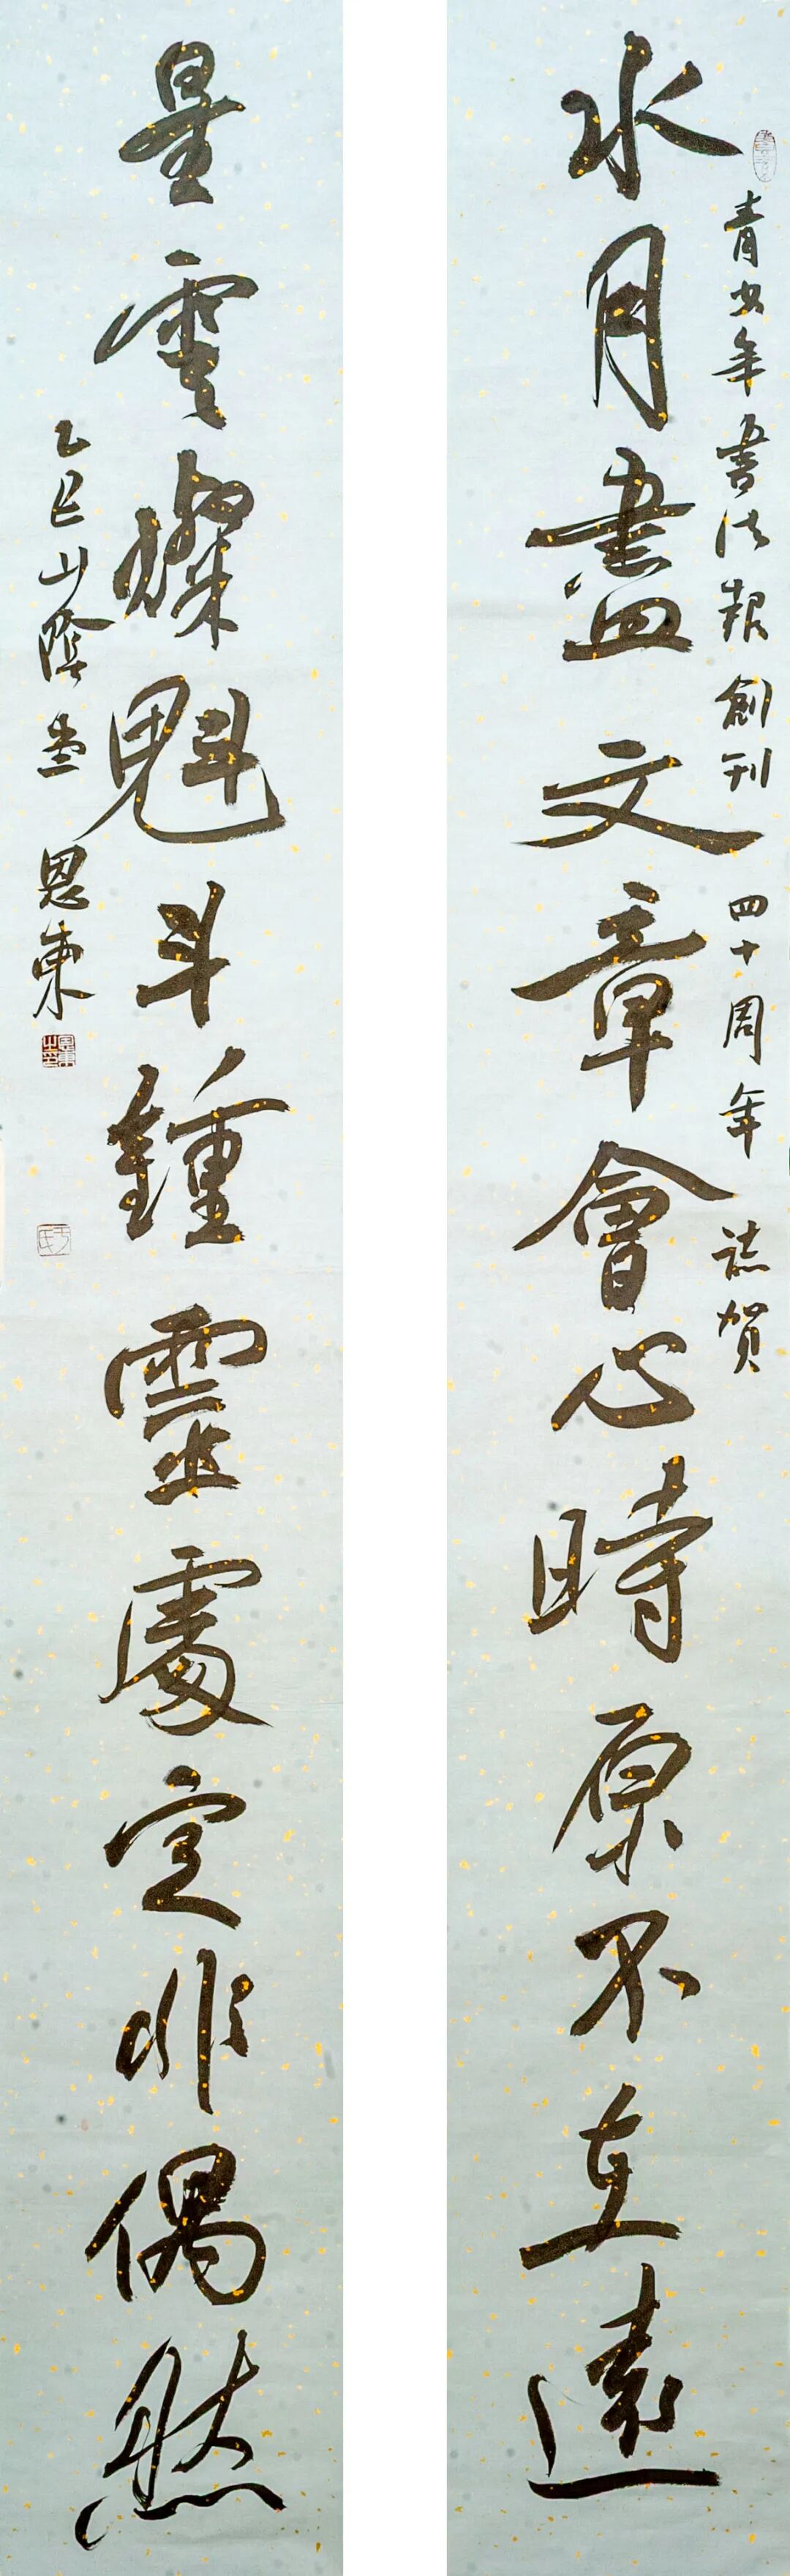 青少年書法報創刊四十周年誌賀
水月盡文章會心時原不在遠
星雲燦魁斗鍾靈處定非偶然
乙巳山陰堂恩東
恩東之印